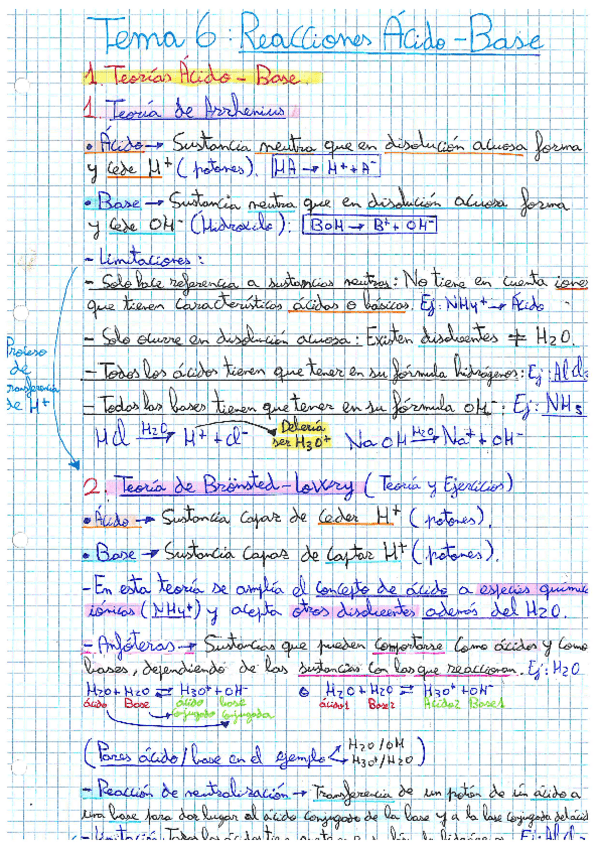 Tema 6: Reacciones Ácido-Base
1. Teorías Ácido-Base.
1. Teoría de Arrhenius
• Ácido → Sustancia neutra que en disolución acuosa forma
y cede H⁺ (protones). HA → H⁺ + A⁻
• Base → Sustancia neutra que en disolución acuosa forma
y cede OH⁻ (Hidroxilo): BOH → B⁺ + OH⁻
- Limitaciones:
- Solo hace referencia a sustancias neutras: No tiene en cuenta iones
que tienen características ácidas o básicas. Ej: NH4⁺ → Ácido
- Solo ocurre en disolución acuosa: Existen disolventes ≠ H2O.
- Todos los ácidos tienen que tener en su fórmula hidrógenos: Ej: AlCl3
- Todas las bases tienen que tener en su fórmula OH⁻: Ej: NH3
Proceso
de
transferencia
de H⁺
HCl H2O→ H⁺ + Cl⁻ Debería ser H3O⁺ NaOH H2O→ Na⁺ + OH⁻
2. Teoría de Brönsted-Lowry (Teoría y Ejercicios)
• Ácido → Sustancia capaz de ceder H⁺ (protones).
• Base → Sustancia capaz de captar H⁺ (protones).
- En esta teoría se amplía el concepto de ácido a especies químic
iónicas (NH4⁺) y acepta otros disolventes además del H2O.
- Anfóteras → Sustancias que pueden comportarse como ácidos y como
bases, dependiendo de las sustancias con las que reaccionan. Ej: H2O
H2O + H2O ⇌ H3O⁺ + OH⁻ o H2O + H2O ⇌ H3O⁺ + OH⁻
ácido Base ácido conjugado base conjugada ácido1 Base2 Ácido2 Base1
(Pares ácido/base en el ejemplo H2O/OH⁻ H3O⁺/H2O)
- Reacción de neutralización → Transferencia de un protón de un ácido a
una base para dar lugar al ácido conjugado de la base y a la base conjugada del ácid
- Limitación: Todos los ácidos tienen